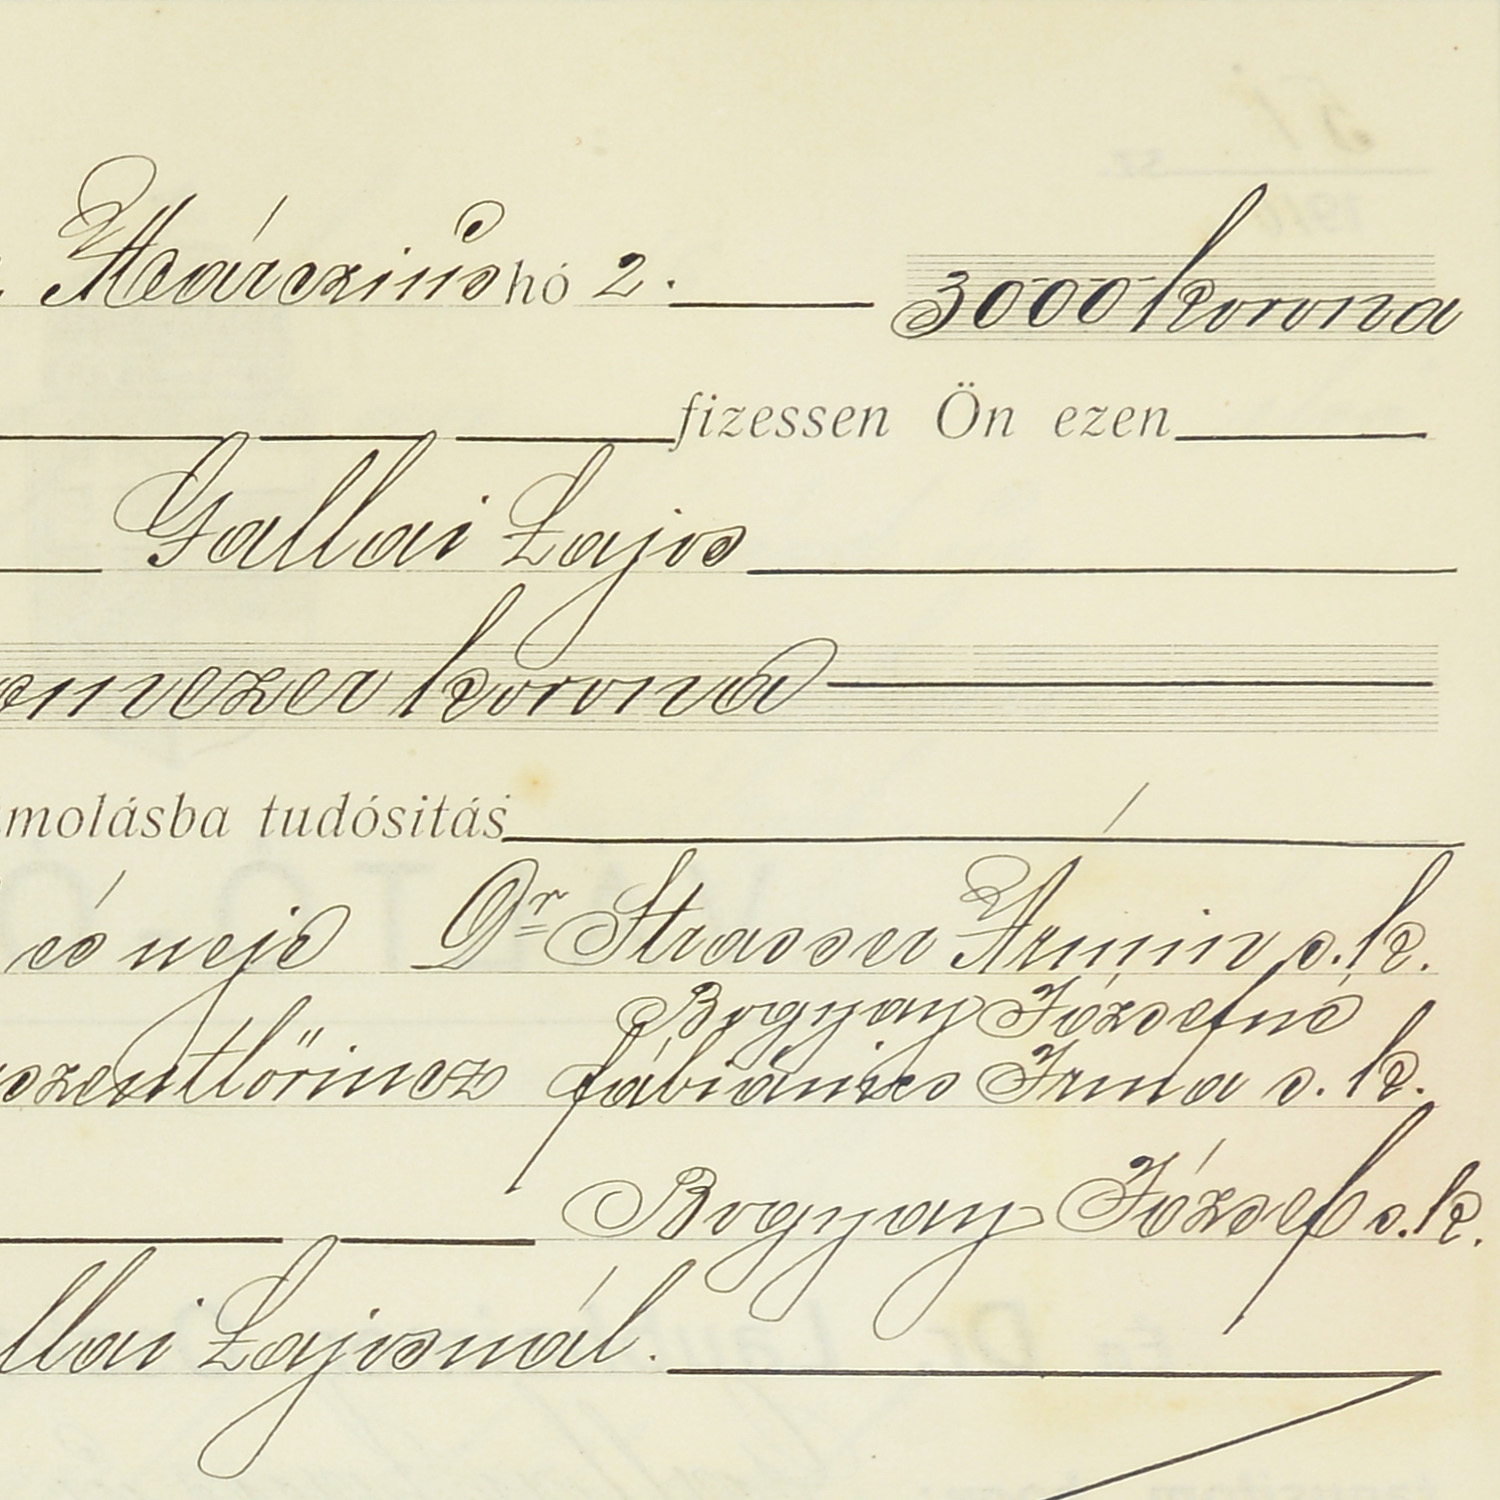 Március hó 2. 3000 korona
fizessen Ön ezen
Gallai Lajos
emezer korona
molásba tudósitás
és neje Dr Strasser Ármin s.k.
Bogyay Józsefné
szentlőrincz Fábiánics Irma s.k.
Bogyay József s.k.
llai Lajosnál.